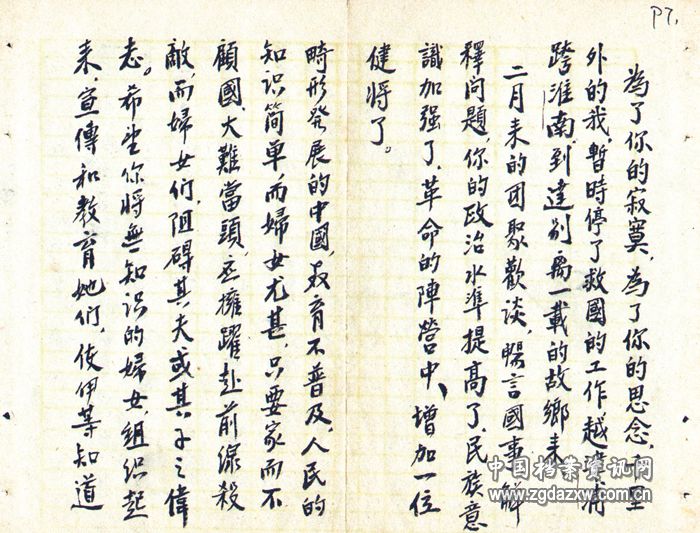 P7.
為了你的寂寞,為了你的思念,千里
外的我,暫時停了救國的工作越
跨淮南,到達別离一載的故鄉来
二月来的团聚歡谈,暢言國事,解
釋问題,你的政治水準提高了,民族意
識加强了,革命的陣營中、增加一位
健将了。
畸形発展的中國,教育不普及,人民的
知识简单,而婦女尤甚,只要家而不
顧國,大難當頭,應擁躍赴前線殺
敵,而婦女们,阻碍其夫或其子之偉
志。希望你将無知识的婦女,组织起
来,宣傳和教育她们,使伊等知道
中国档案资讯网
www.zgdazxw.com.cn